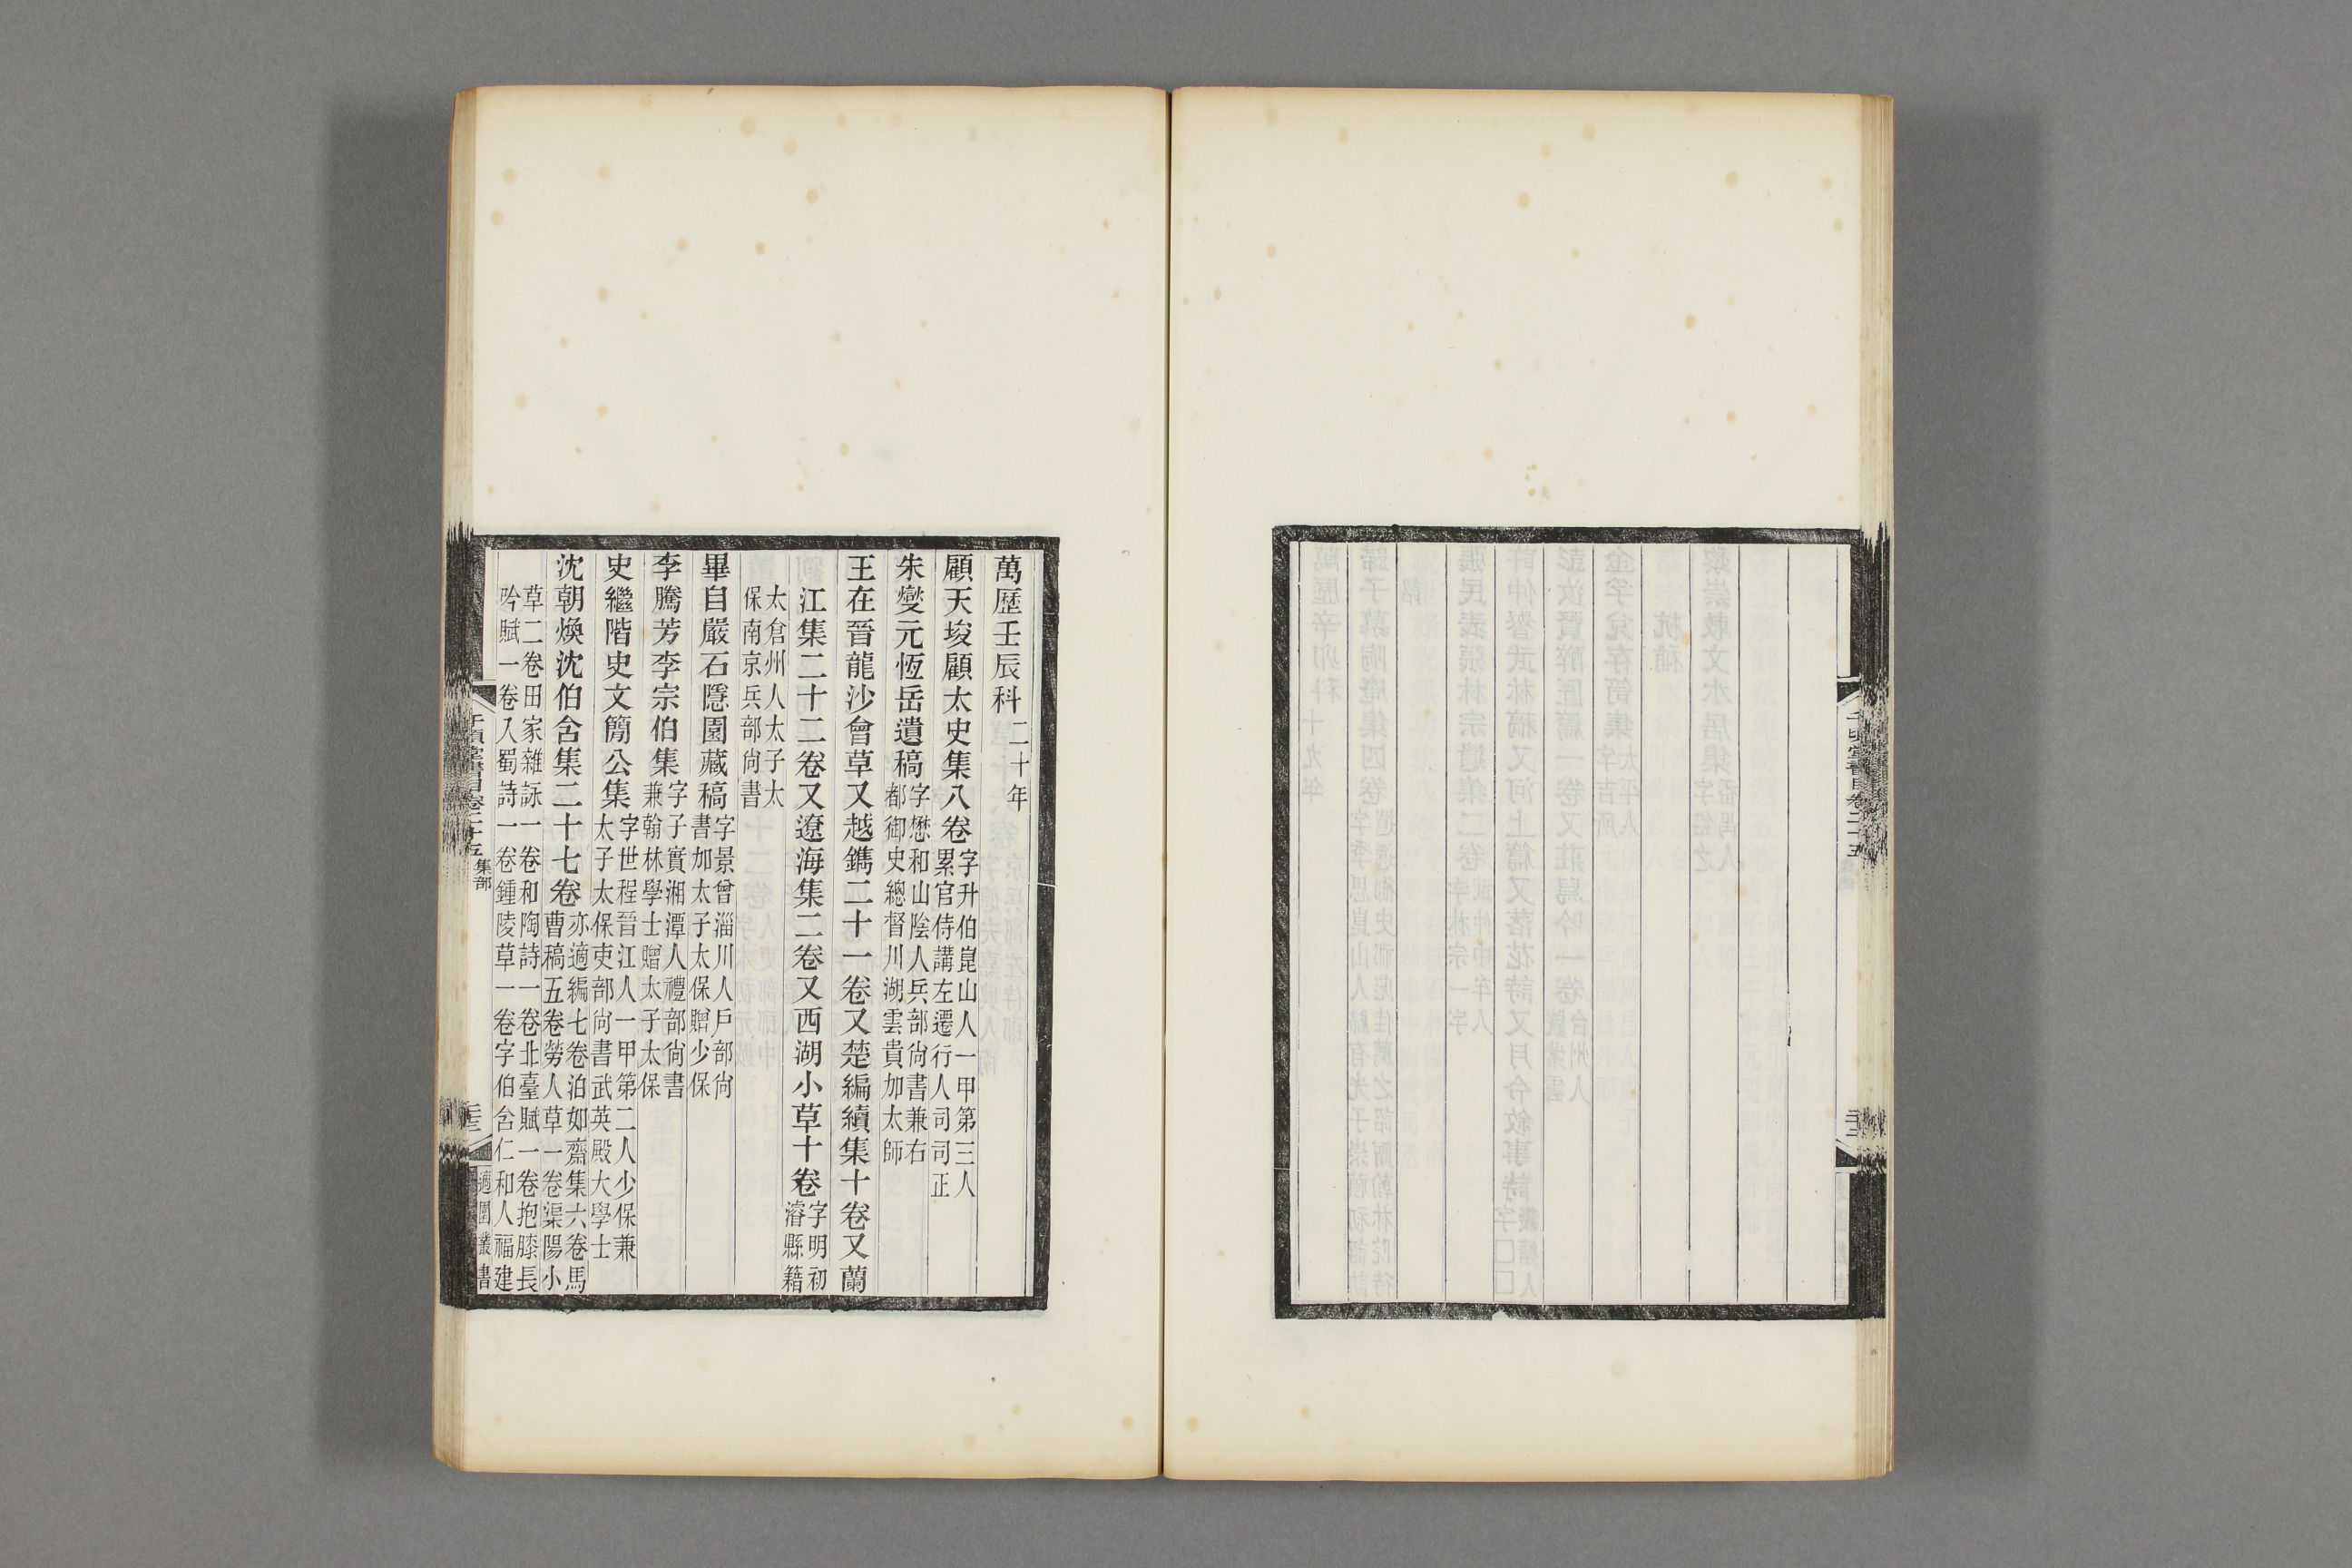 千頃堂書目卷二十五
萬歷壬辰科二十年
顧天埈顧太史集八卷字升伯崑山人一甲第三人
累官侍講左遷行人司司正
朱燮元恆岳遺稿字懋和山陰人兵部尙書兼右
都御史總督川湖雲貴加太師
王在晉龍沙會草又越鐫二十一卷又楚編續集十卷又蘭
江集二十二卷又遼海集二卷又西湖小草十卷字明初
濬縣籍
太倉州人太子太
保南京兵部尙書
畢自嚴石隱園藏稿字景曾淄川人戶部尙
書加太子太保贈少保
李騰芳李宗伯集字子實湘潭人禮部尙書
兼翰林學士贈太子太保
史繼階史文簡公集字世程晉江人一甲第二人少保兼
太子太保吏部尙書武英殿大學士
沈朝煥沈伯含集二十七卷亦適編七卷泊如齋集六卷馬
曹稿五卷勞人草一卷渠陽小
草二卷田家雜詠一卷和陶詩一卷北臺賦一卷抱膝長
吟賦一卷入蜀詩一卷鍾陵草一卷字伯含仁和人福建
千頃堂書目卷二十五 集部
適園叢書